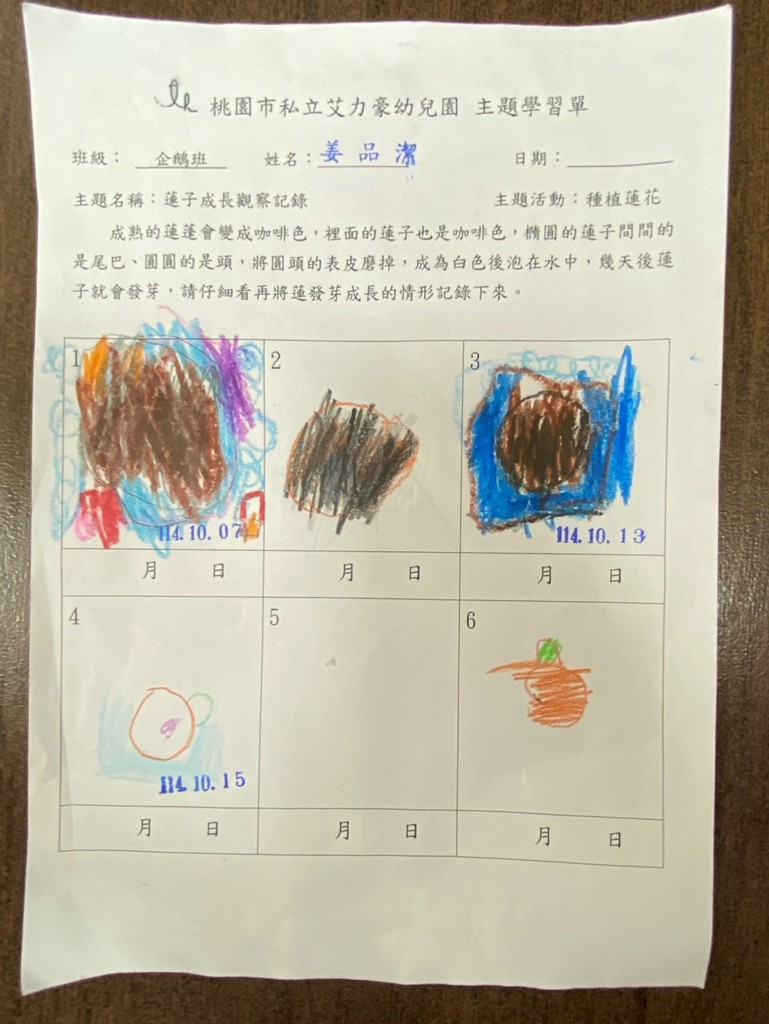 桃園市私立艾力豪幼兒園 主題學習單
班級： 企鵝班 姓名：姜品潔 日期：
主題名稱：蓮子成長觀察記錄 主題活動：種植蓮花
成熟的蓮蓬會變成咖啡色，裡面的蓮子也是咖啡色，橢圓的蓮子間間的
是尾巴、圓圓的是頭，將圓頭的表皮磨掉，成為白色後泡在水中，幾天後蓮
子就會發芽，請仔細看再將蓮發芽成長的情形記錄下來。
1 2 3
114.10.07 114.10.13
月 日 月 日 月 日
4 5 6
114.10.15
月 日 月 日 月 日